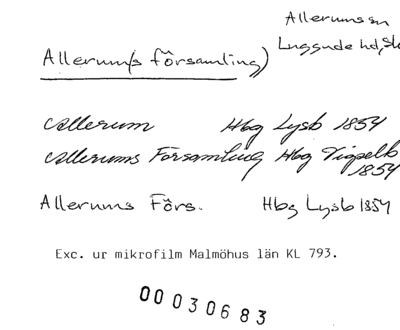 Allerums sn
Luggude hd,
Allerum/s församling)
Allerum Hbg Lysb 1854
Allerums Församling Hbg Vigselb
1854
Allerums Förs. Hbg Lysb 1854
Exc. ur mikrofilm Malmöhus län KL 793.
00030683